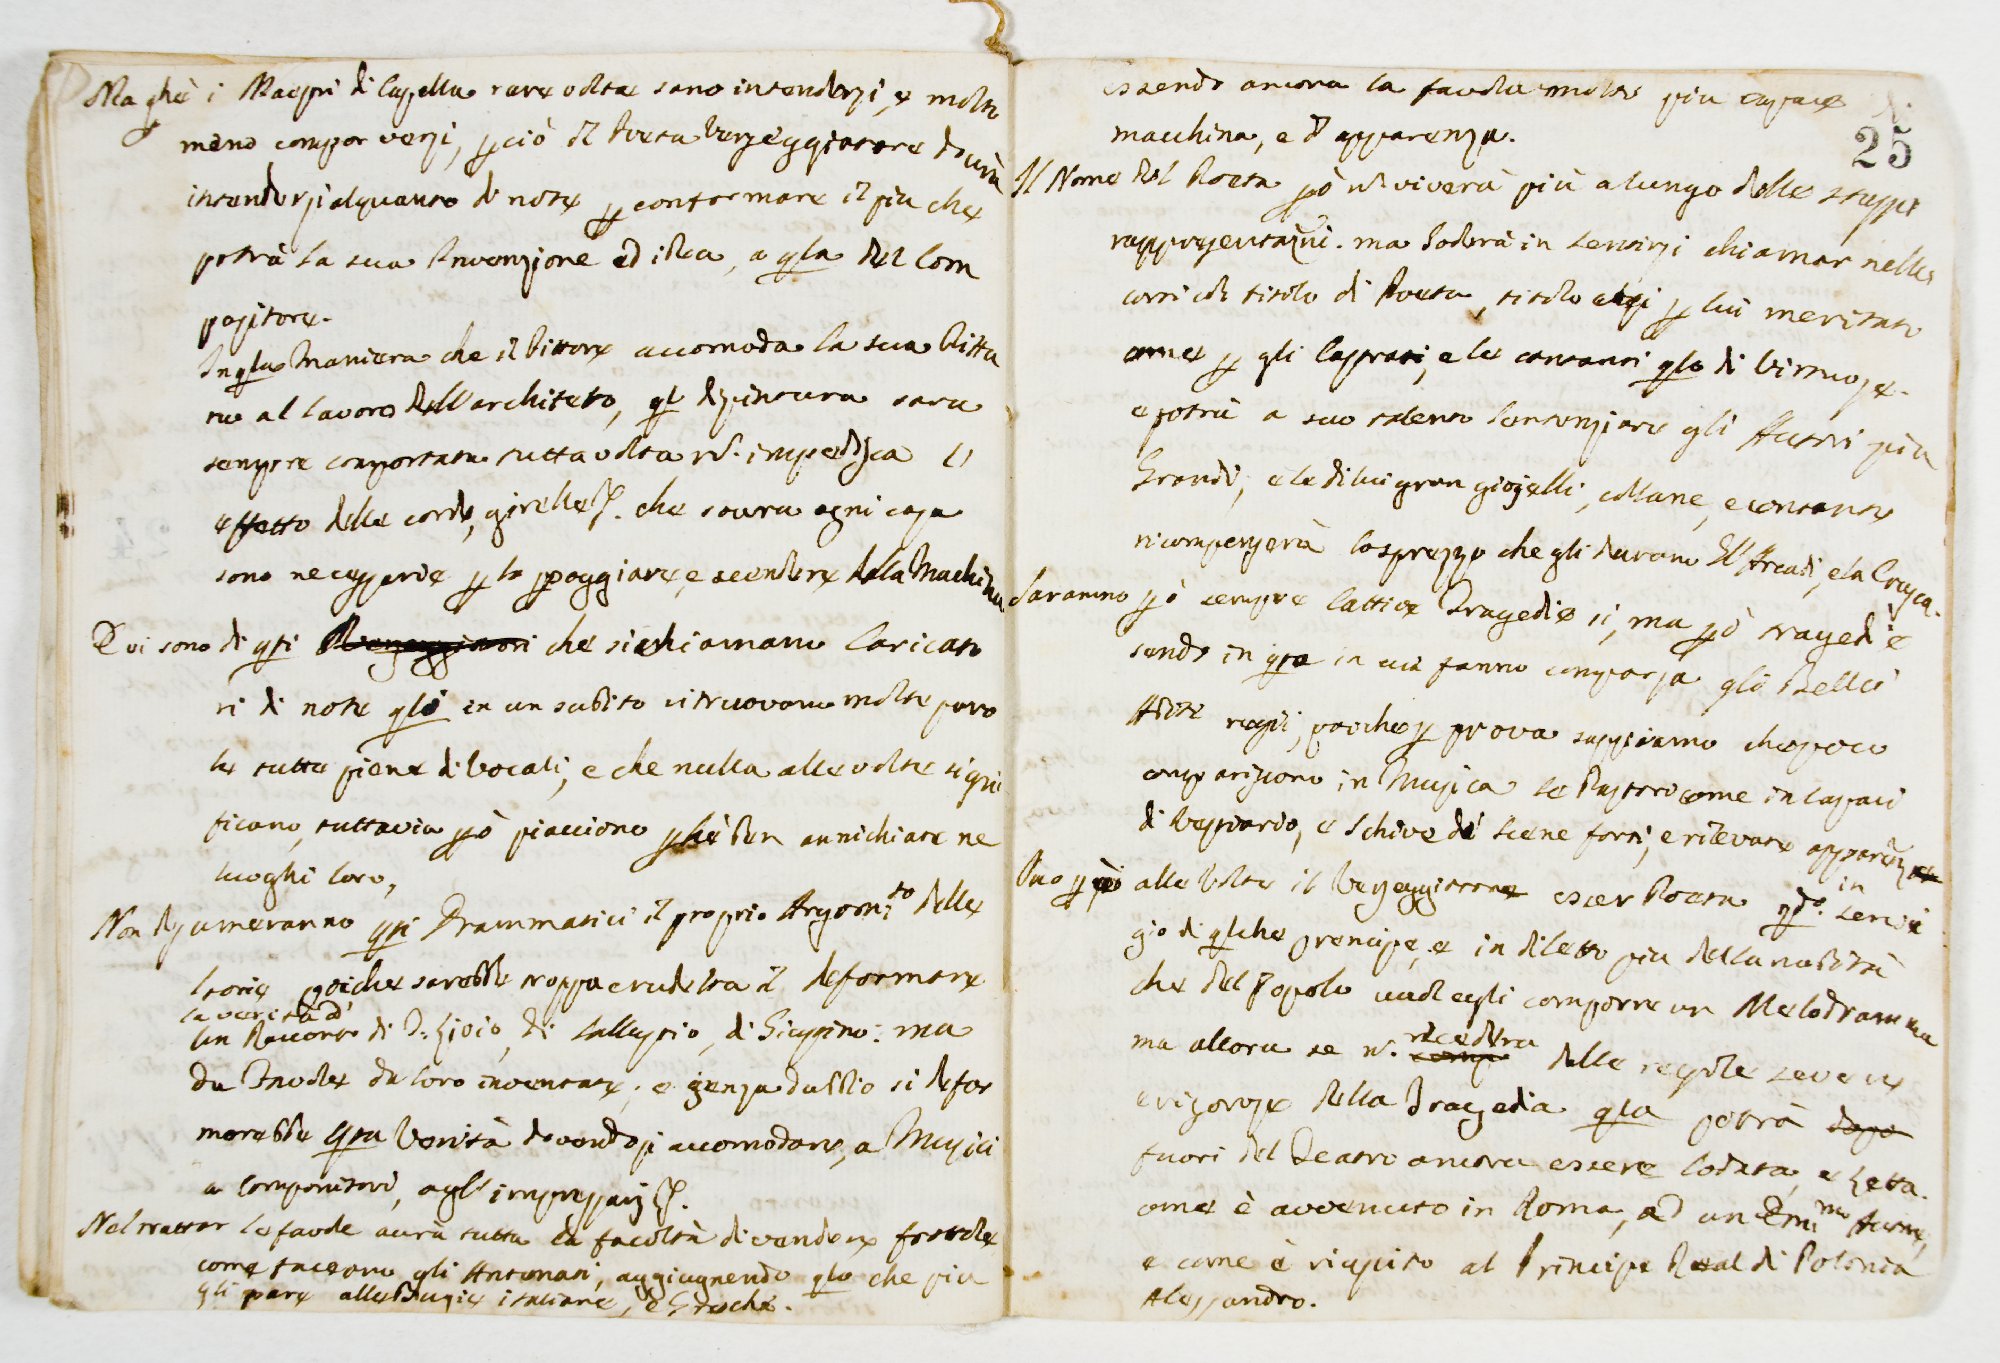 Ma che i Maestri di Capella rare volte sano intendersi, e molto
meno compor versi, p ciò il Poeta Verseggiatore dovrà
intendersi alquanto di note p conformare il piu che
potrà la sua Invenzione ed idea, a qla del Com
positore.
In qlla Maniera che il Pittore accomoda la sua Pittu
ra al lavoro dell'architeto, qt dipintura sara
sempre comportata tutta volta n. impedisca l'
effetto delle corde, girelle &. che sovra ogni cosa
sono necessarie p lo poggiare, e scendere della Machina
E vi sono di qsti Verseggiatori che si chiamano Caricato
ri di note qli in un subito ritruovano molte paro
le tutte piene di Vocali, e che nulla alle volte signi
ficano, tuttavia pò piacciono pche ben annichiate ne
luoghi loro,
Non dessumeranno qsti Drammatici il proprio Argomto dalle
Istorie poiche sarebbe troppa crudelta il deformare
la verità d'
Un Racconto di T. Livio, di Sallustio, di Giustino: ma
da Favole da loro inventate; e senza dubbio si defor
marebbe qsta Verità dovendosi accomodare, a Musici
a Compositori, agl' impressarj &.
Nel trattar le favole aurà tutta la facoltà di vendere frottole
come faceano gli Antenati, aggiugnendo qlo che piu
gli pare alle Bugie italiane, e Greche.
essendo ancora la favola molto piu capace di
macchina, e d'apparenza.
25
Il Nome del Poeta pò n. viverà più a lungo delle stesse
rappresentazni. ma goderà in sentirsi chiamar nelle
corri col titolo di Poeta, titolo assi p lui meritato
come p gli Castrati, e le cantanti qlo di Virtuose.
e potrà a suo talento sentenziare gli Autori più
Grandi, e le di lui gran giojelli, collane, e contante
ricompenserà lo sprezzo che gli daranno gl'Arcadi, e la Crusca.
Saranno pò sempre Cattive Tragedie si, ma pò tragedie
sendo in qsta in cui fanno comparsa gli Belli
Abiti regii, poiche p prova sappiamo che poco
compariscono in Musica le Pastori come incapaci
di Vestiario, e schive di scene forti, e rilevate apparenze
Puo p pò alle Volte il Verseggiatore esser Poeta qdo. in servi
gio di qlche prencipe, e in diletto piu della nobiltà
che del Popolo vuol egli comporre un Melodramma
ma allora se n. recederà dalle regole severe
e rigorose della Tragedia qla potrà dopo
fuori del Teatro ancora essere lodata, e letta.
come è avvenuto in Roma, ad un Emimo Autore,
e come è riuscito al Principe Real di Polonia
Alessandro.